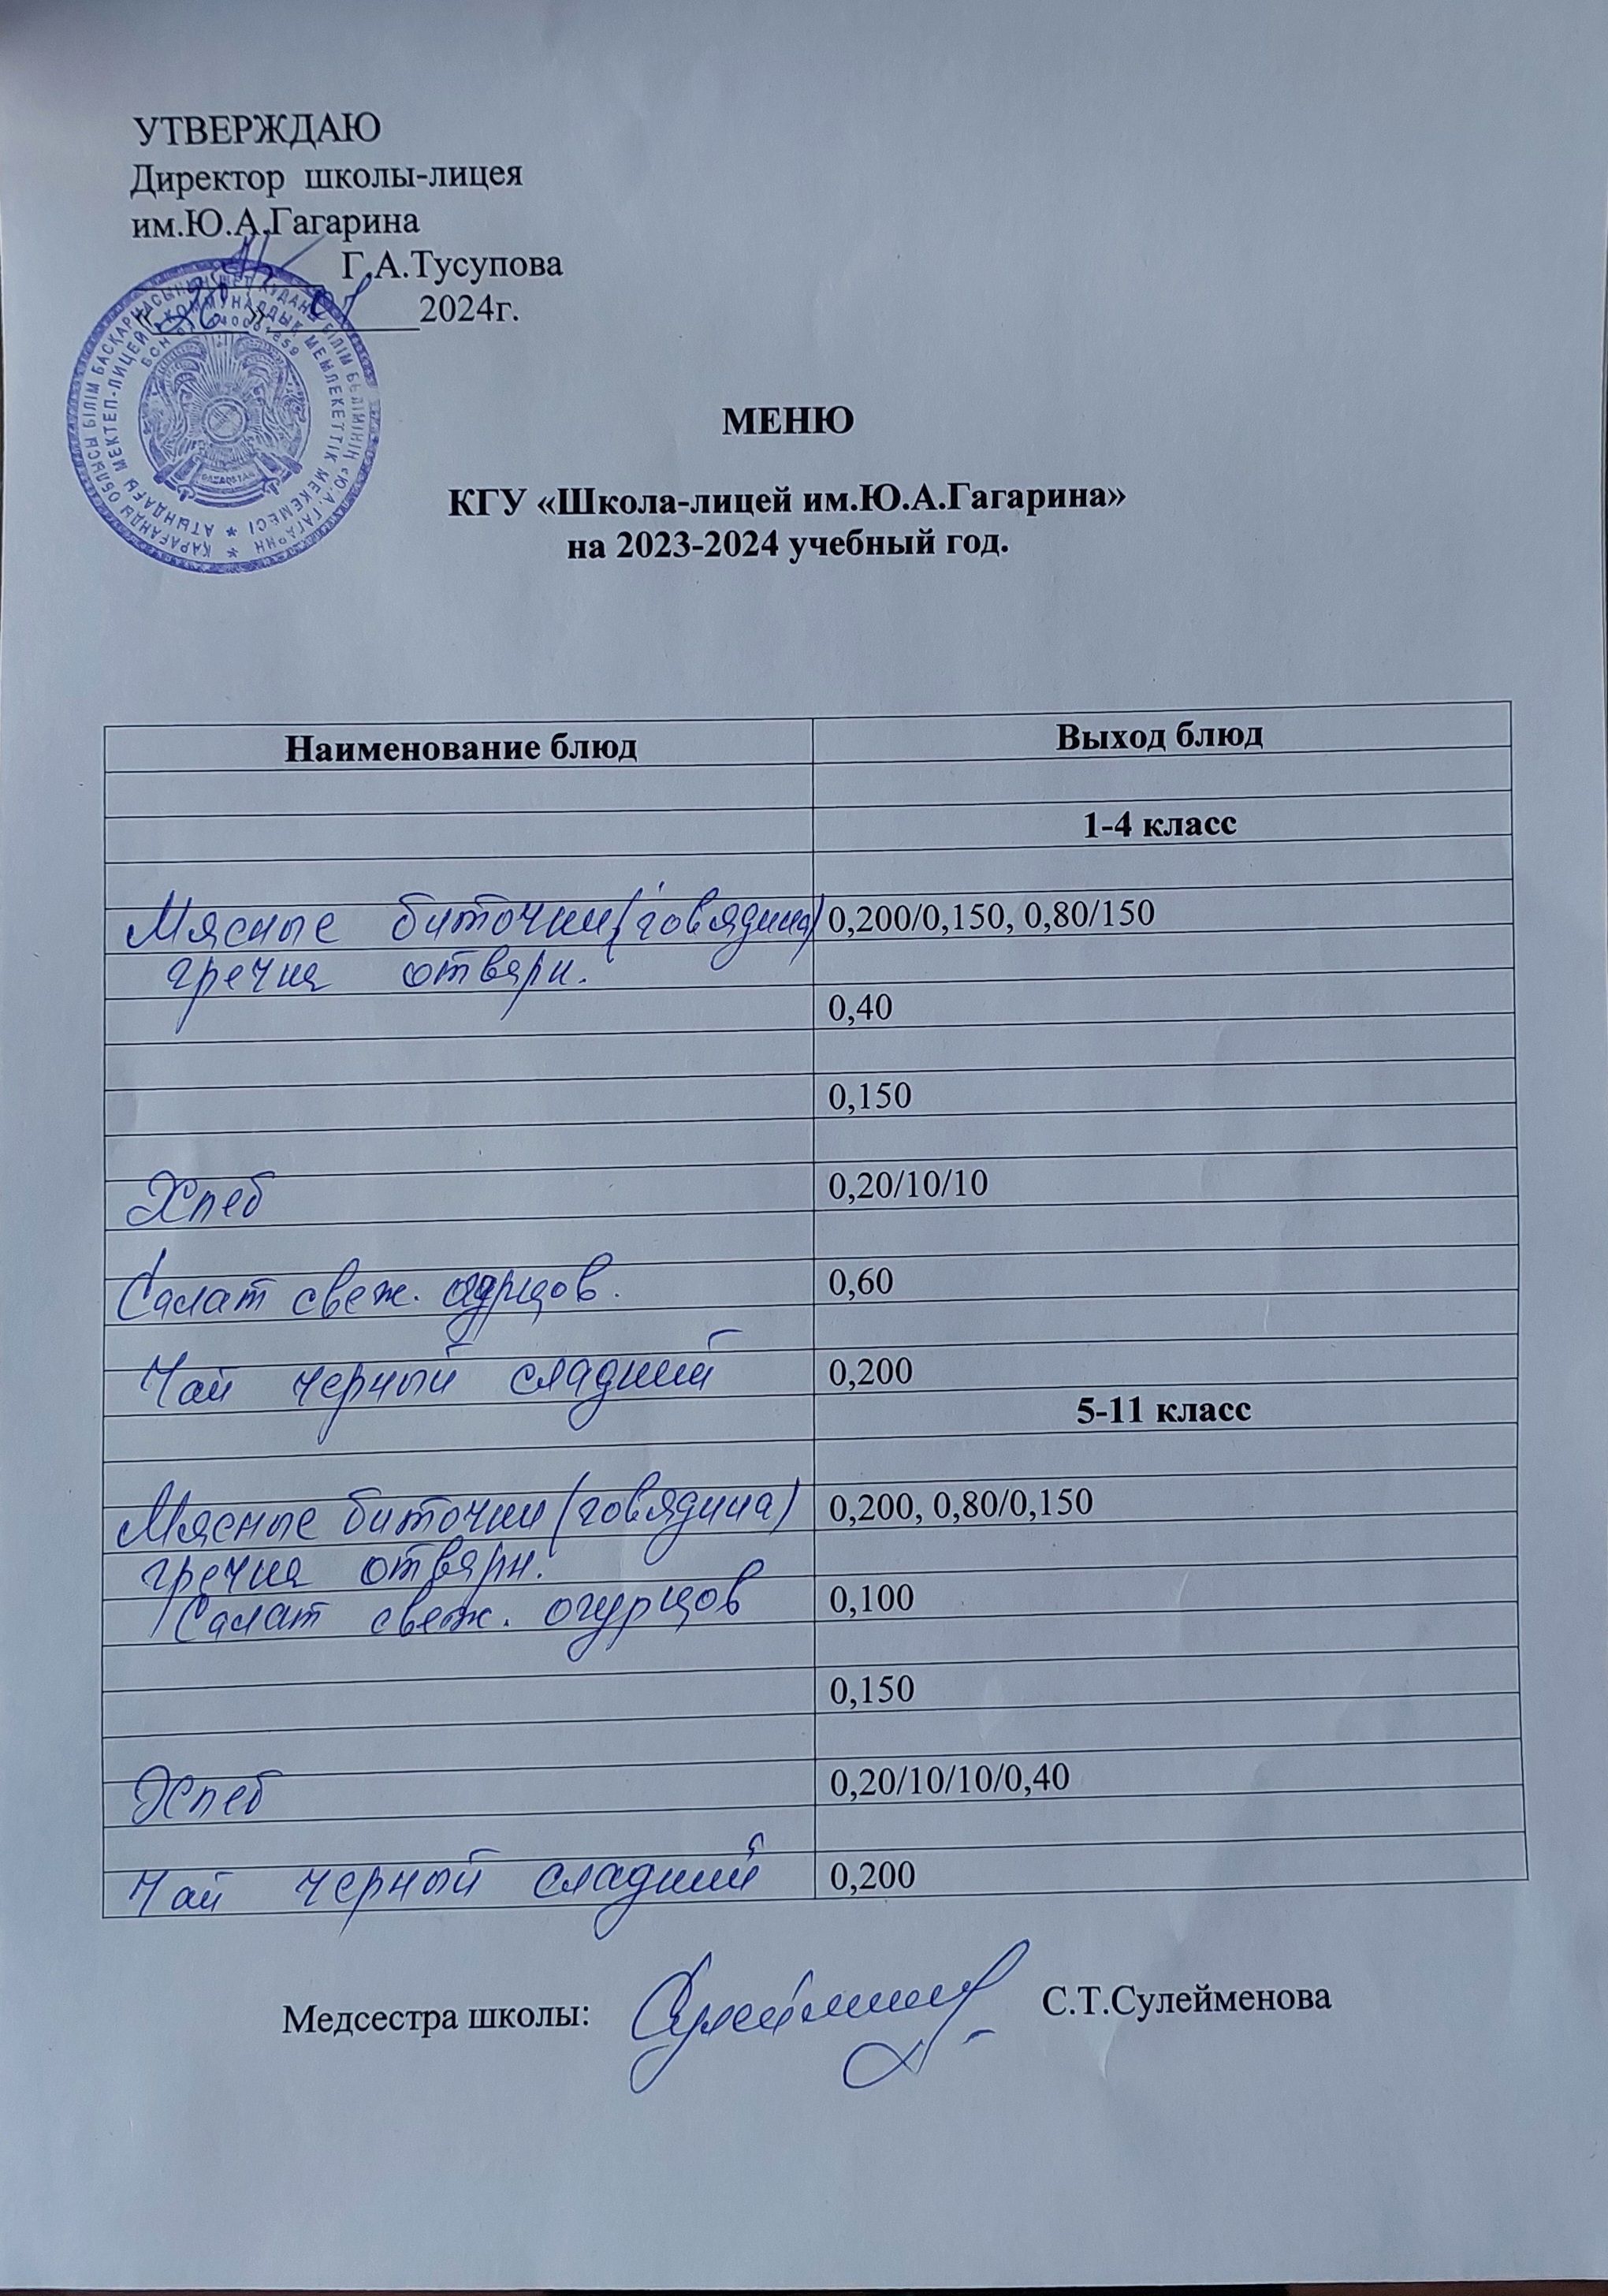 УТВЕРЖДАЮ
Директор школы-лицея
им.Ю.А.Гагарина
Г.А.Тусупова
«26» 2024г.
МЕНЮ
КГУ «Школа-лицей им.Ю.А.Гагарина»
на 2023-2024 учебный год.
Наименование блюд Выход блюд
1-4 класс
Мясные биточки (говядина) 0,200/0,150, 0,80/150
гречка отварн.
0,40
0,150
Хлеб 0,20/10/10
Салат свеж. огурцов. 0,60
Чай черный сладкий 0,200
5-11 класс
Мясные биточки (говядина) 0,200, 0,80/0,150
гречка отварн.
Салат свеж. огурцов 0,100
0,150
Хлеб 0,20/10/10/0,40
Чай черный сладкий 0,200
Медсестра школы: С.Т.Сулейменова